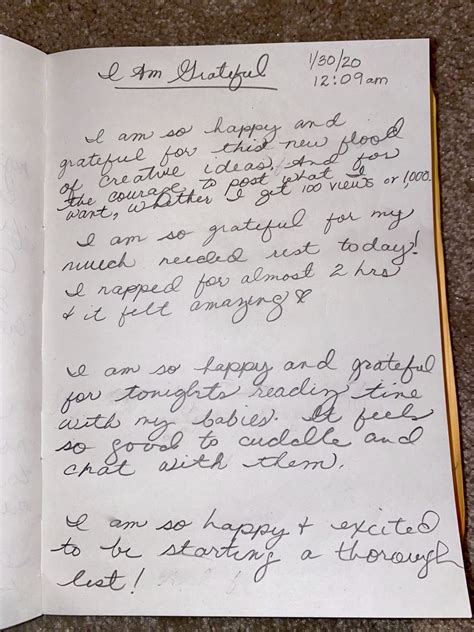 I Am Grateful
1/30/20
12:09am
I am so happy and
grateful for this new flood
of creative ideas. And for
the courage to post what I
want, whether I get 100 views or 1,000.
I am so grateful for my
much needed rest today!
I rapped for almost 2 hrs
& it felt amazing
I am so happy and grateful
for tonights reading time
with my babies. It feels
so good to cuddle and
chat with them.
I am so happy & excited
to be starting a thorough
list!